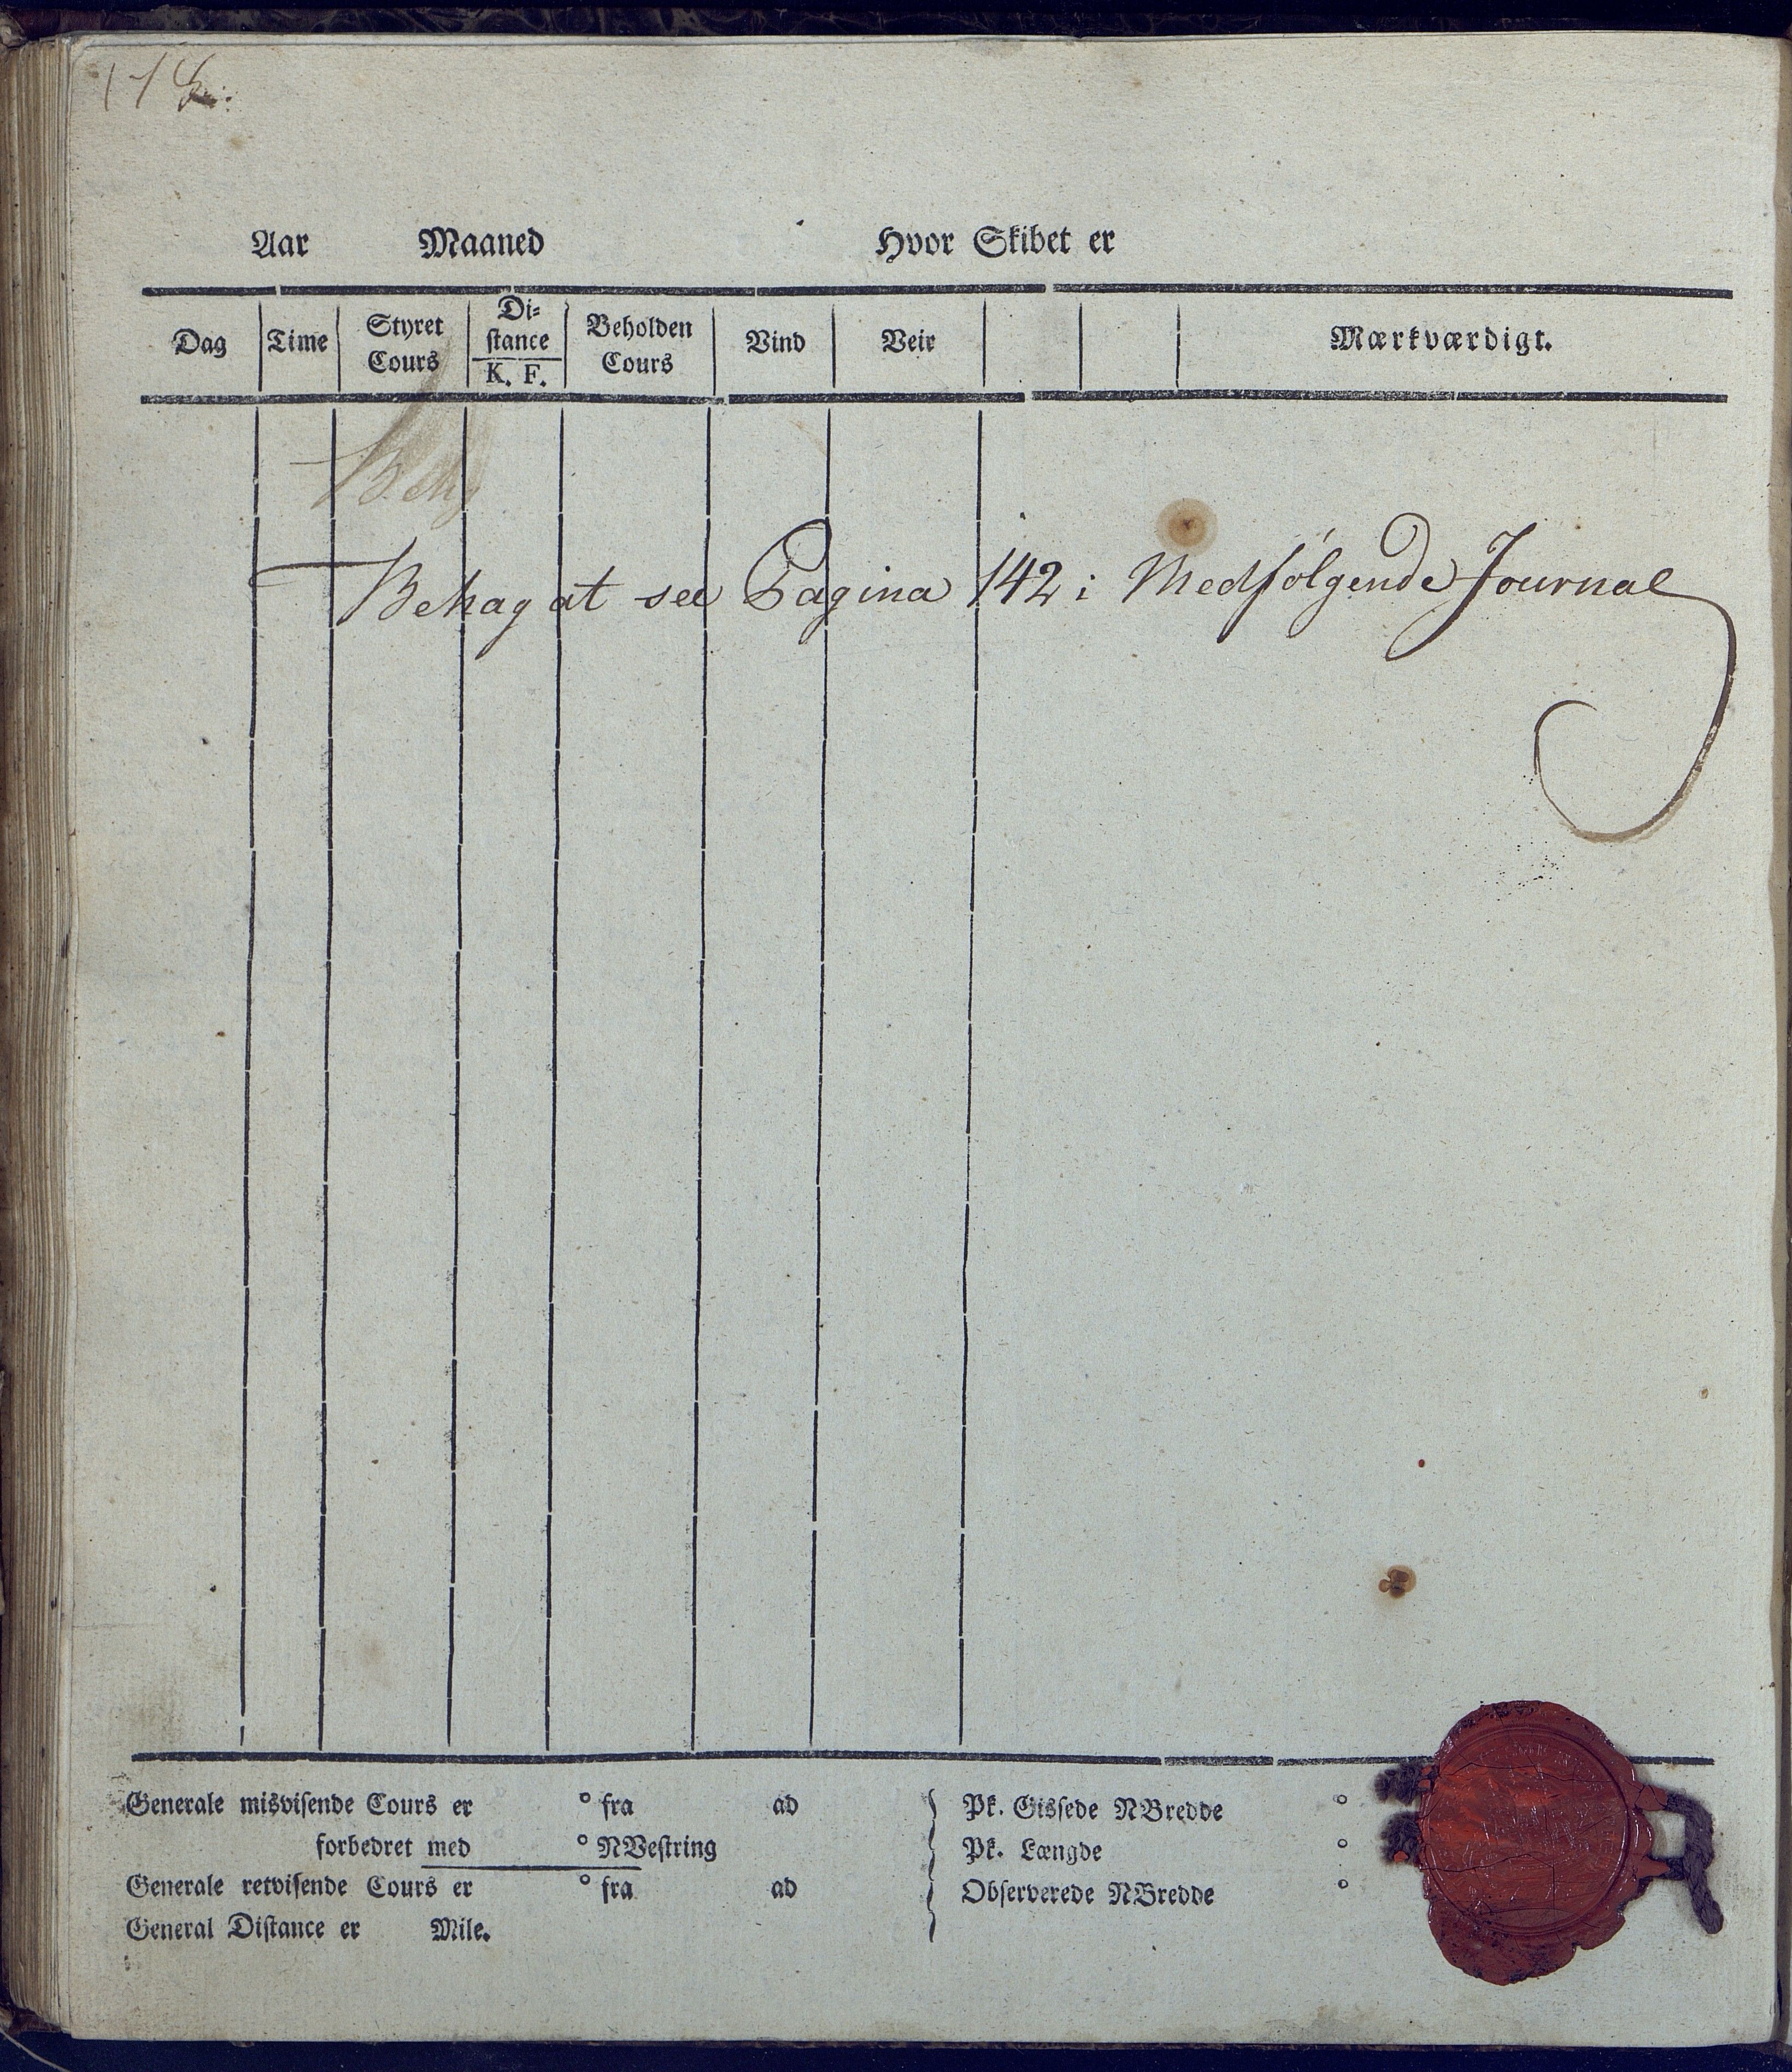 Aar Maaned Hvor Skibet er
Dag Time Styret Cours Di=stance K. F. Beholden Cours Vind Veir Mærkværdigt.
Behag
Behag at see Pagina 142 i Medfølgende Journal
Generale misvisende Cours er ° fra ad Pk. Gissede NBredde °
forbedret med ° NVestring Pk. Længde °
Generale retvisende Cours er ° fra ad Observerede NBredde °
General Distance er Mile.